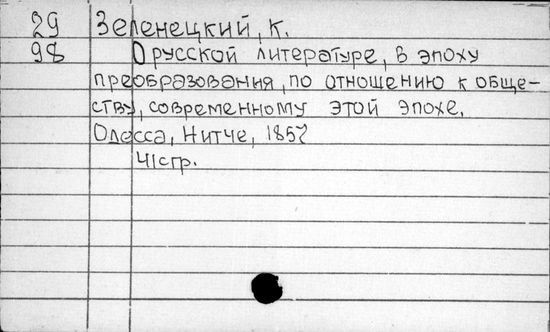 29 Зеленецкий, К.
98 О русской литературе, в эпоху
преобразования, по отношению к обще-
ству, современному этой эпохе.
Одесса, Нитче, 1857
41стр.